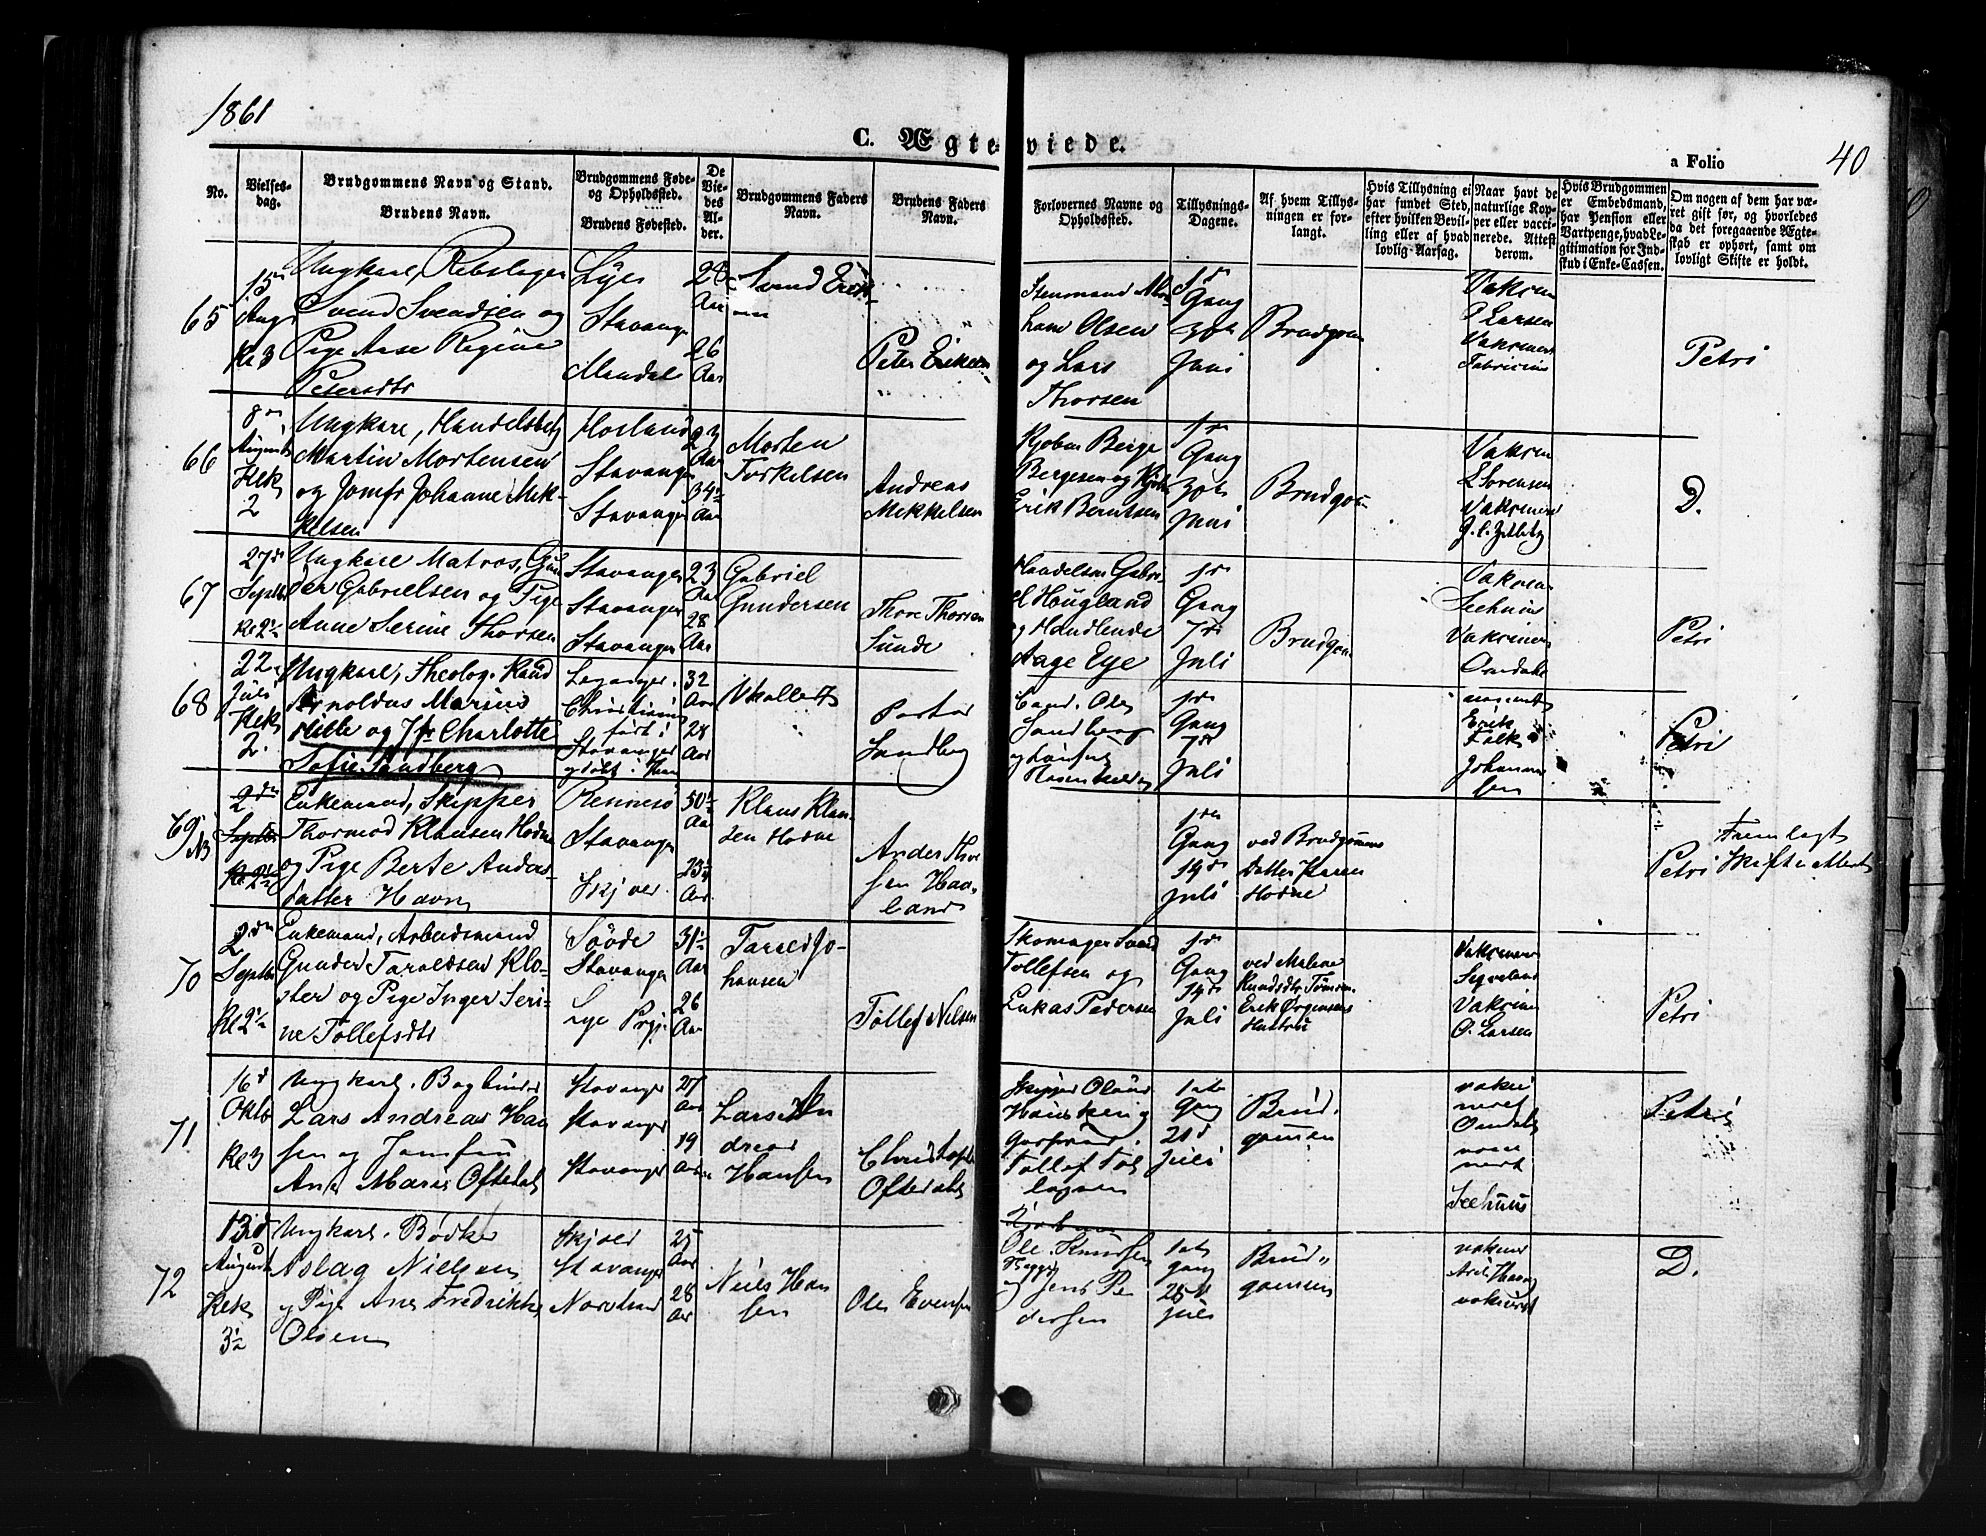 1861
C. Ægteviede.
a Folio
40
No.
Vielses-
dag.
Brudgommens Navn og Stand.
Brudens Navn.
Brudgommens Føde-
og Opholdssted.
Brudens Fødested.
De
Vie-
des
Al-
der.
Brudgommens Faders
Navn.
Brudens Faders
Navn.
Forlovernes Navne og
Opholdssted.
Tillysnings-
Dagene.
Af hvem Tillys-
ningen er for-
langt.
Hvis Tillysning ei
har fundet Sted,
efter hvilken Bevil-
ling eller af hvad
lovlig Aarsag.
Naar havt de
naturlige Kop-
per eller vacci-
nerede. Attest
derom.
Hvis Brudgommen
er Embedsmand,
har Pension eller
Vartpenge, hvad Le-
gitimation for Ind-
skud i Enke-Cassen.
Om nogen af dem har væ-
ret gift før, og hvorledes
da det foregaaende Ægte-
skab er ophørt, samt om
lovligt Skifte er holdt.
65
15de
Aug
Kl 3
Ungkarl, Rebslager
Svend Svendsen og
Pige Anse Regine
Petersdtr
Lye
Stavanger
Mandal
28
Aar
26
Aar
Svend Erik-
sen
Peter Eriksen
Olsen
og Lars
Thorsen
1ste
Gang
30te
Juni
Brudgom
Vakcin
P Larsen
Vakciner
Fabricius
Petri
66
8de
August
Klk
2
Ungkarl, Handelsbetj
Martin Mortensen
og Jomfr Johanne Mik-
kelsen
Stavanger
Stavanger
23
Aar
34½
Aar
Morten
Torkelsen
Andreas
Mikkelsen
Kjøbm Berge
Bergesen og Kjøbm
Erik Berntsen
1ste
Gang
30te
Juni
Brudgom
Vakcin
L Sørensen
Vakciner
D.
67
27de
Septbr
Kl 2½
Ungkarl Matros, Gun-
der Gabrielsen og Pige
Anne Serine Thorsen
Stavanger
Stavanger
Stavanger
23
Aar
28
Aar
Gabriel
Gundersen
Thore Thorsen
Sunde
Handelsm Gabri-
el Hougland
og Handlende
Aage Eye
1ste
Gang
7de
Juli
Brudgom
Vakcin
Seehuus
Vakciner
Omdahl
Petri
68
22de
Juli
Klk
2
Ungkarl, Theolog. Kand
Arnoldus Marius
Hille og Jfr Charlotte
Sofie Sandberg
Leganger.
Christiania
født i
Stavanger
32
Aar
28
Aar
Pastor
Sandberg
Cand. Ole
Sandberg
1ste
Gang
7de
Juli
Erik
Falk
Johannes
sen
Petri
69
NB
2den
Septbr
Kl 2½
Enkemand, Skipper
Thormod Klausen Hodne
og Pige Berte Anders-
datter Havn
Rennesø
Stavanger
Skjold
50½
Aar
23¾
Aar
Klaus Klau-
sen Hodne
Anders Thor
sen Haa-
land
1ste
Gang
14de
Juli
ved Brudgommens
Datter Karen
Hodne
Petri
Fremlagt
Skifte Attest
70
2den
Septbr
Kl 2½
Enkemand, Arbeidsmand
Gunder Taraldsen Klo-
ster og Pige Inger Seri-
ne Tollefsdtr
Stavanger
Lye Prgj.
31½
Aar
26
Aar
Tarald Jo-
hansen
Tollef Nilsen
Skomager Svend
Tollefsen og
Lukas Pedersen
1ste
Gang
14de
Juli
ved Malene
Knudsdtr Tømrm.
Erik Ørgensens
Hustru
Vakciner
Vakcin
O. Larsen
Petri
71
16de
Oktbr
Kl 3
Ungkarl. Bogbinder
Lars Andreas Han
sen og Jomfru
Ane Marie Oftedal
Stavanger
Stavanger
Stavanger
27
Aar
19
Aar
Lars An
dreas
Hansen
Christopher
Oftedahl
Skipper
Tollef Tol
lagsen
1ste
Gang
21de
Juli
Brud-
gommen
vakci
neret
Omdahl
Seehuus
Petri
72
13de
August
Klk
3½
Ungkarl. Bødker
Aslag Nielsen
og Pige Ane Fredrikke
Olsen
Skjold
Stavanger
25
Aar
28
Aar
Niels Han
sen
Ole Evensen
Ole Knudsen
og Jens Pe
dersen
1ste
gang
28de
Juli
Brud-
gommen
vakcine
D.